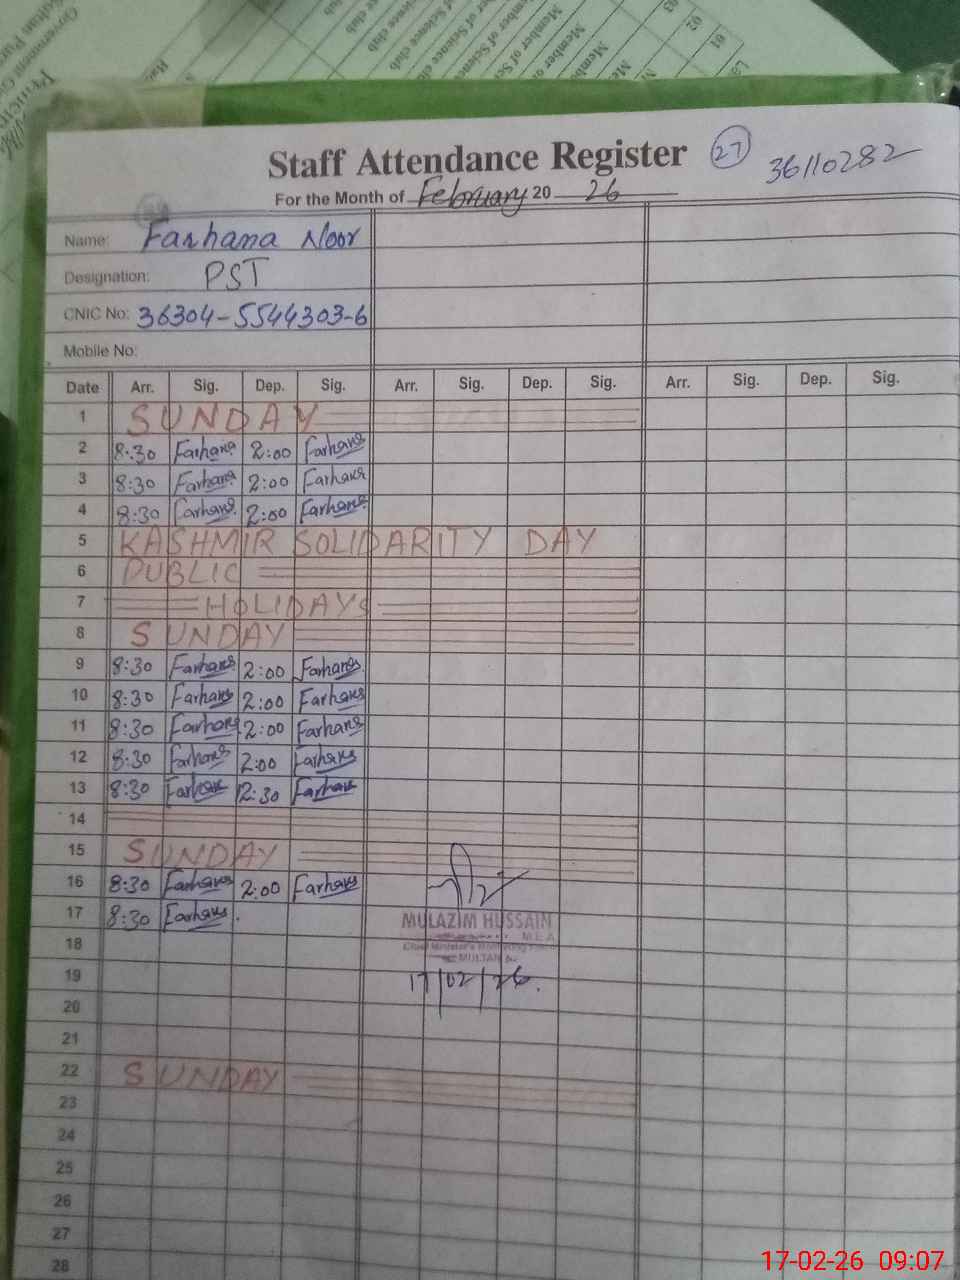 Member of Science club
Staff Attendance Register 27 36110282
For the Month of February 20 26
Name: Farhana Noor
Designation: PST
CNIC No: 36304-5544303-6
Mobile No:
Date Arr. Sig. Dep. Sig. Arr. Sig. Dep. Sig. Arr. Sig. Dep. Sig.
1 SUNDAY
2 8:30 Farhana 2:00 Farhana
3 8:30 Farhana 2:00 Farhana
4 8:30 Farhana 2:00 Farhana
5 KASHMIR SOLIDARITY DAY
6 PUBLIC
7 HOLIDAYS
8 SUNDAY
9 8:30 Farhana 2:00 Farhana
10 8:30 Farhana 2:00 Farhana
11 8:30 Farhana 2:00 Farhana
12 8:30 Farhana 2:00 Farhana
13 8:30 Farhana 12:30 Farhana
14
15 SUNDAY
16 8:30 Farhana 2:00 Farhana
17 8:30 Farhana.
MULAZIM HUSSAIN
M.E.A
Chief Minister's Monitoring
MULTAN
17/02/26.
18
19
20
21
22 SUNDAY
23
24
25
26
27
28
17-02-26 09:07